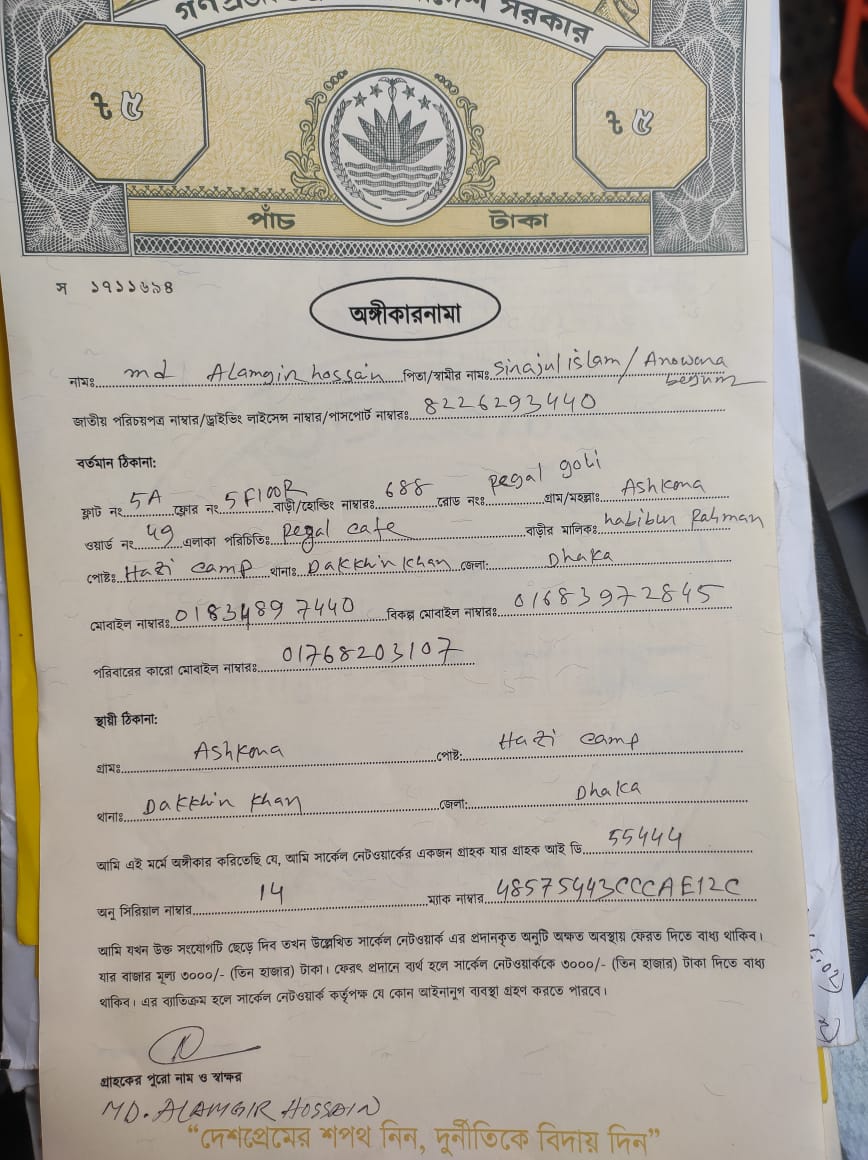 সরকার
৳ ৫
৳ ৫
পাঁচ টাকা
স ১৭১১৬৯৪
অঙ্গীকারনামা
নামঃ md Alamgir hossain পিতা/স্বামীর নামঃ Sinajul islam / Anowana begum
জাতীয় পরিচয়পত্র নাম্বার/ড্রাইভিং লাইসেন্স নাম্বার/পাসপোর্ট নাম্বারঃ 8226293440
বর্তমান ঠিকানা:
ফ্লাট নং 5A ফ্লোর নং 5 Fl00R বাড়ী/হোল্ডিং নাম্বারঃ 688 রোড নংঃ Regal goli গ্রাম/মহল্লাঃ Ashkona
ওয়ার্ড নং 49 এলাকা পরিচিতিঃ Regal cafe বাড়ীর মালিকঃ habibur Rahman
পোষ্টঃ Hazi camp থানাঃ Dakkhin khan জেলা: Dhaka
মোবাইল নাম্বারঃ 01834897440 বিকল্প মোবাইল নাম্বারঃ 01683972845
পরিবারের কারো মোবাইল নাম্বারঃ 01768203107
স্থায়ী ঠিকানা:
গ্রামঃ Ashkona পোষ্ট: Hazi camp
থানাঃ Dakkhin khan জেলা: Dhaka
আমি এই মর্মে অঙ্গীকার করিতেছি যে, আমি সার্কেল নেটওয়ার্কের একজন গ্রাহক যার গ্রাহক আই ডি 55444
অনু সিরিয়াল নাম্বার 14 ম্যাক নাম্বার 48575443CCCAE12C
আমি যখন উক্ত সংযোগটি ছেড়ে দিব তখন উল্লেখিত সার্কেল নেটওয়ার্ক এর প্রদানকৃত অনুটি অক্ষত অবস্থায় ফেরত দিতে বাধ্য থাকিব।
যার বাজার মূল্য ৩০০০/- (তিন হাজার) টাকা। ফেরৎ প্রদানে ব্যর্থ হলে সার্কেল নেটওয়ার্ককে ৩০০০/- (তিন হাজার) টাকা দিতে বাধ্য
থাকিব। এর ব্যতিক্রম হলে সার্কেল নেটওয়ার্ক কর্তৃপক্ষ যে কোন আইনানুগ ব্যবস্থা গ্রহণ করতে পারবে।
গ্রাহকের পুরো নাম ও স্বাক্ষর
MD. ALAMGIR HOSSAIN
“দেশপ্রেমের শপথ নিন, দুর্নীতিকে বিদায় দিন”